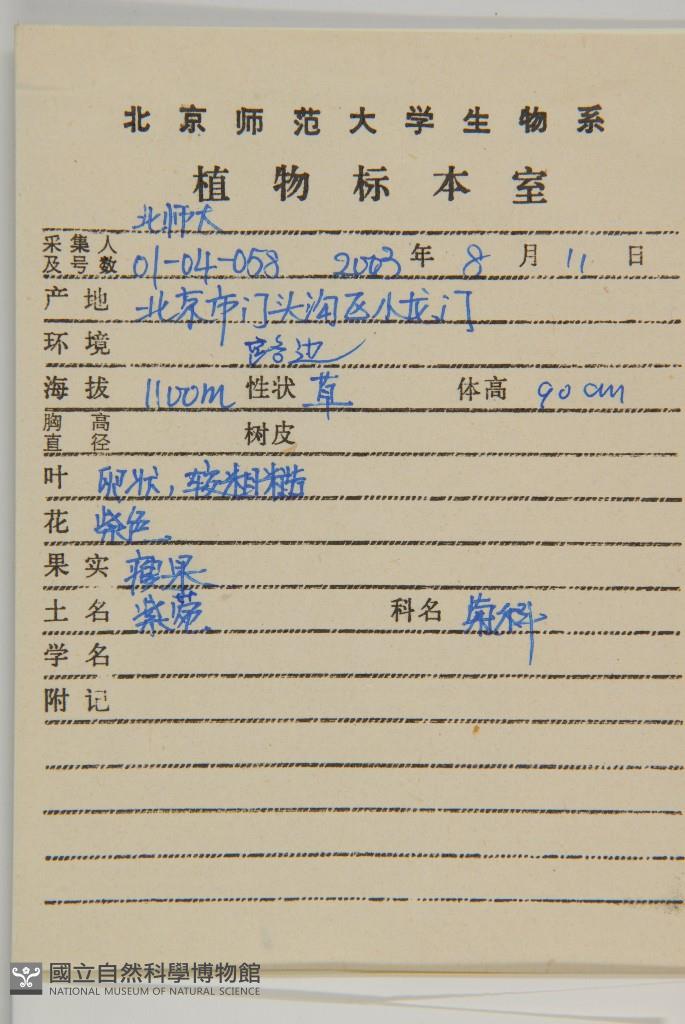 北京师范大学生物系
植物标本室
北师大
采集人及号数 01-04-058 2003年8月11日
产地 北京市门头沟区小龙门
环境 路边
海拔 1100m 性状 草 体高 90cm
胸高直径 树皮
叶 卵状，较粗糙
花 紫色。
果实 瘦果
土名 紫菀。 科名 菊科
学名
附记
國立自然科學博物館
NATIONAL MUSEUM OF NATURAL SCIENCE